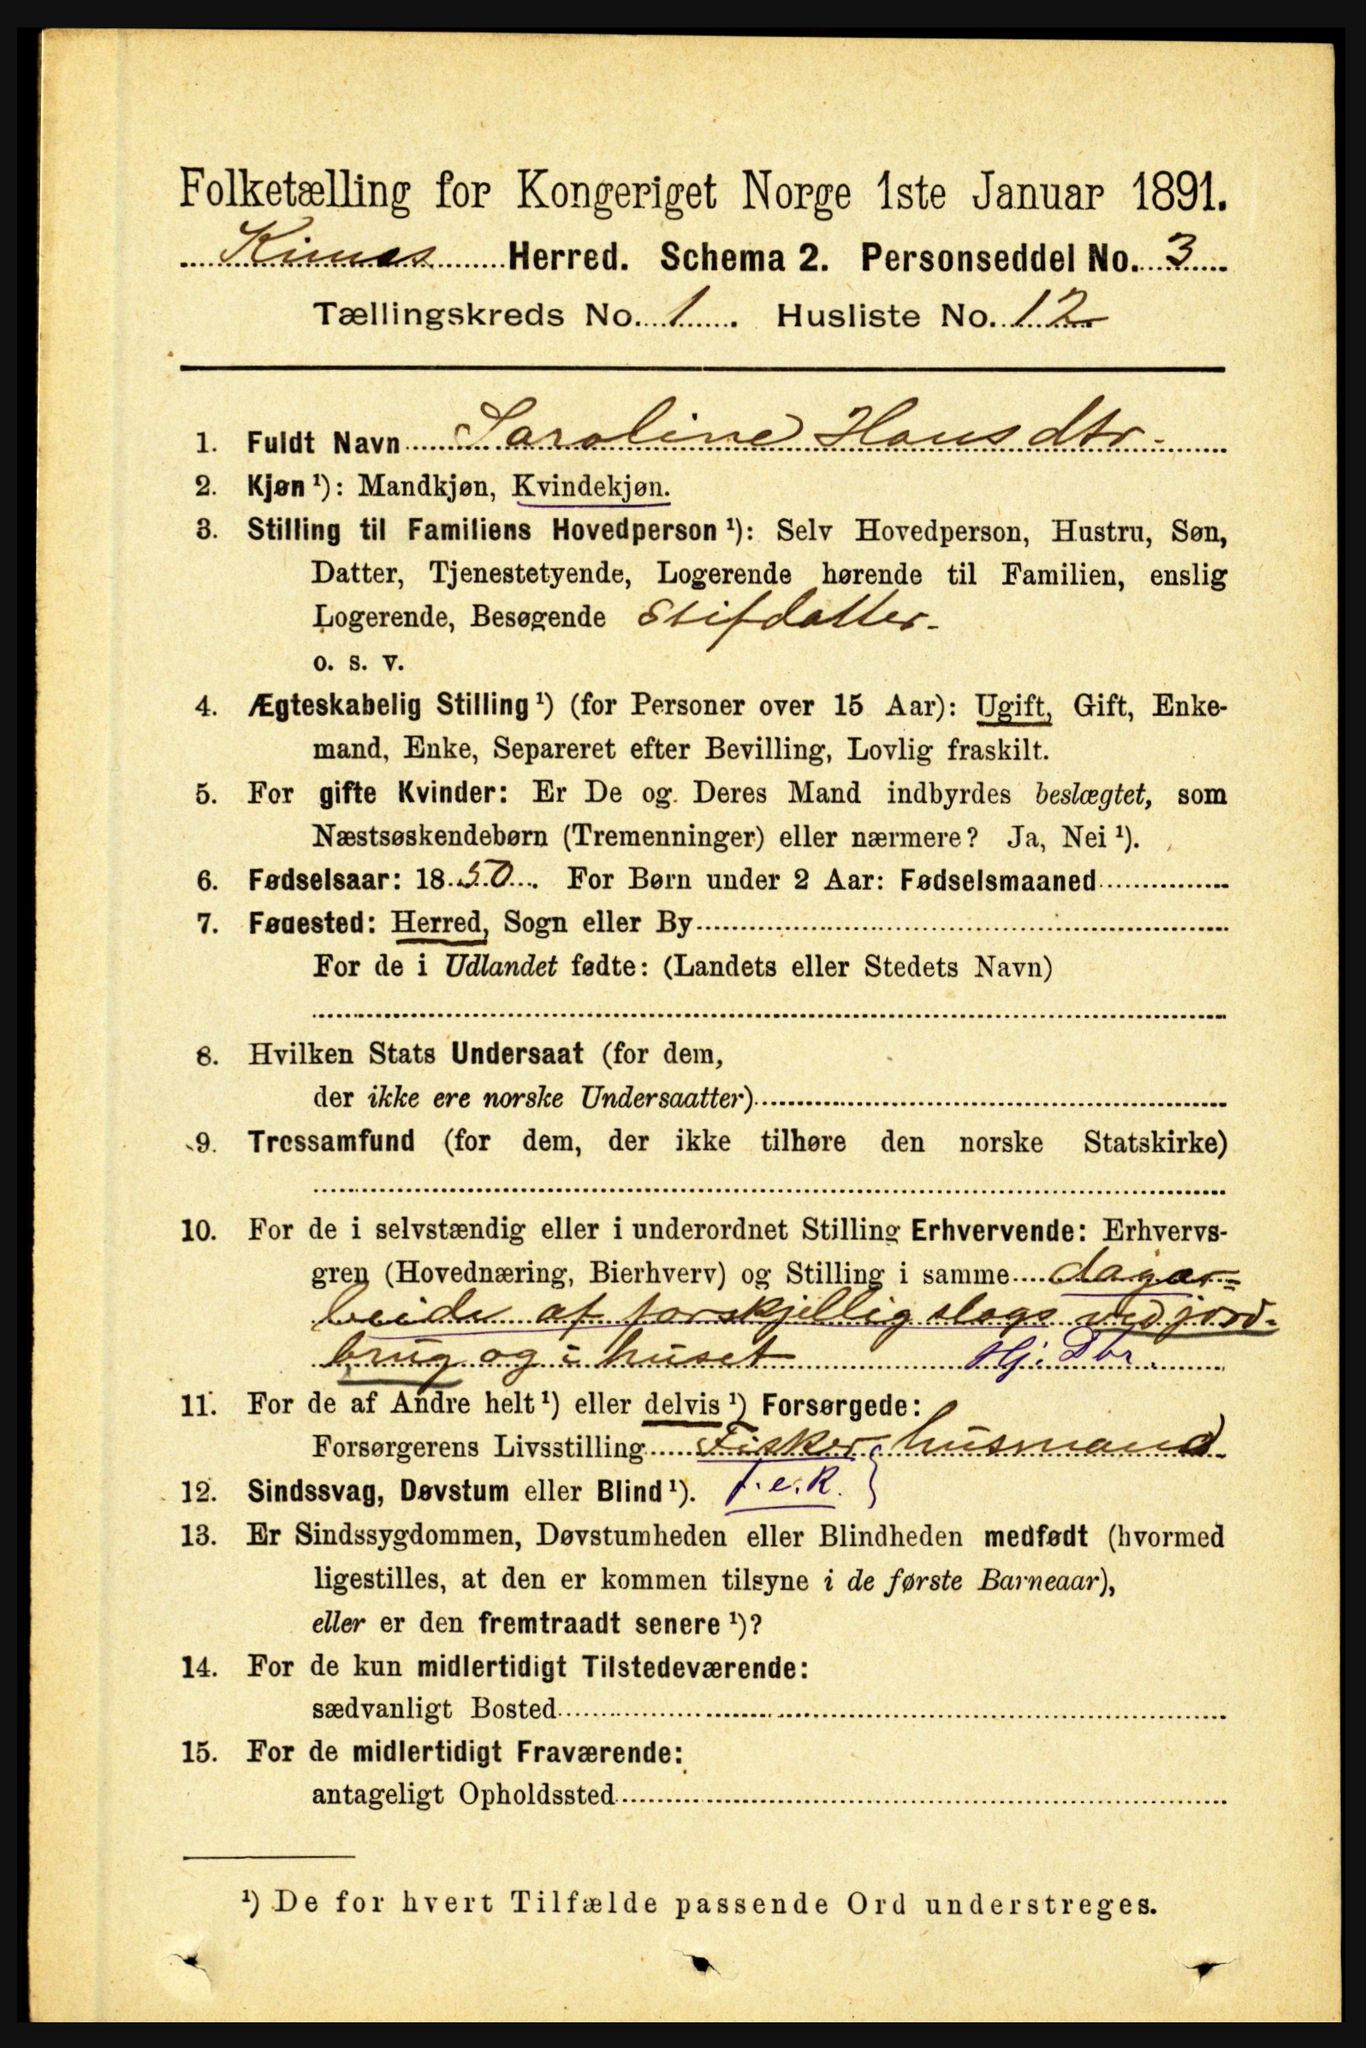 Folketælling for Kongeriget Norge 1ste Januar 1891.
Kinns Herred. Schema 2. Personseddel No. 3
Tællingskreds No. 1. Husliste No. 12
1. Fuldt Navn Saroline Hansdtr.
2. Kjøn ¹): Mandkjøn, Kvindekjøn.
3. Stilling til Familiens Hovedperson ¹): Selv Hovedperson, Hustru, Søn,
Datter, Tjenestetyende, Logerende hørende til Familien, enslig
Logerende, Besøgende Stifdatter.
o. s. v.
4. Ægteskabelig Stilling ¹) (for Personer over 15 Aar): Ugift, Gift, Enke-
mand, Enke, Separeret efter Bevilling, Lovlig fraskilt.
5. For gifte Kvinder: Er De og Deres Mand indbyrdes beslægtet, som
Næstsøskendebørn (Tremenninger) eller nærmere? Ja, Nei ¹).
6. Fødselsaar: 1850. For Børn under 2 Aar: Fødselsmaaned
7. Fødested: Herred, Sogn eller By
For de i Udlandet fødte: (Landets eller Stedets Navn)
8. Hvilken Stats Undersaat (for dem,
der ikke ere norske Undersaatter)
9. Trossamfund (for dem, der ikke tilhøre den norske Statskirke)
10. For de i selvstændig eller i underordnet Stilling Erhvervende: Erhvervs-
gren (Hovednæring, Bierhverv) og Stilling i samme dagar=
beide af forskjellig slags ved jord-
brug og i huset Hj. Dtr.
11. For de af Andre helt ¹) eller delvis ¹) Forsørgede:
Forsørgerens Livsstilling Fisker husmand
12. Sindssvag, Døvstum eller Blind ¹). f.e.R. }
13. Er Sindssygdommen, Døvstumheden eller Blindheden medfødt (hvormed
ligestilles, at den er kommen tilsyne i de første Barneaar),
eller er den fremtraadt senere ¹)?
14. For de kun midlertidigt Tilstedeværende:
sædvanligt Bosted
15. For de midlertidigt Fraværende:
antageligt Opholdssted
¹) De for hvert Tilfælde passende Ord understreges.